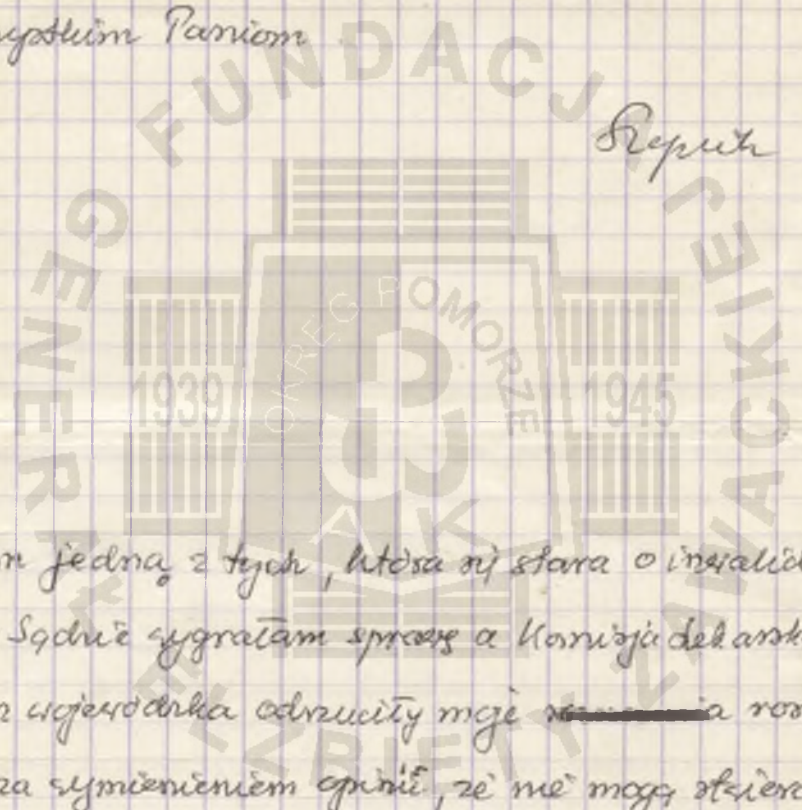 ystkim Paniom
FUNDACJI GENERAŁ ELŻBIETY ZAWACKIEJ
OKRĘG POMORZE
1939 1945
AK
m jedną z tych, która się stara o inwalid
Sądzie wygrałam sprawę a Komisja Lekarsk
wojewódzka odrzuciły moje
za wymienieniem opinii, że nie mogą